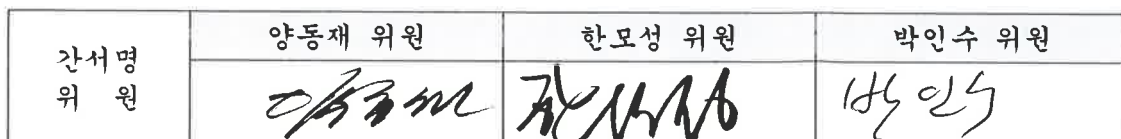 간서명 위원
양동재 위원
한모성 위원
박인수 위원
박인수